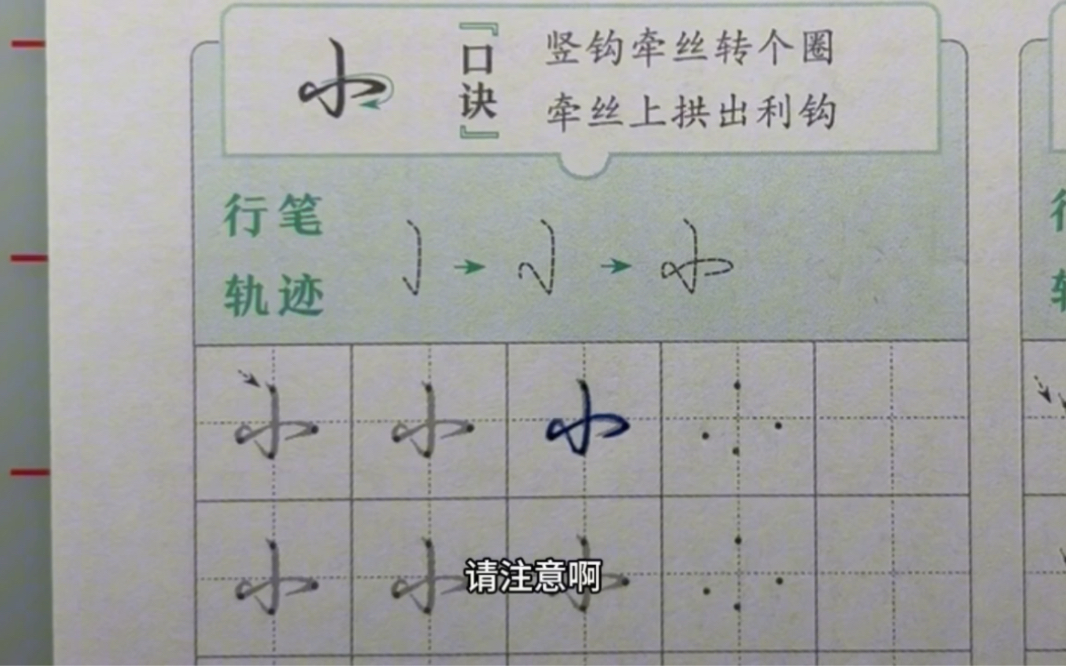 小
『口诀』
竖钩牵丝转个圈
牵丝上拱出利钩
行笔
轨迹
小
小 小 小
小 小 小
请注意啊